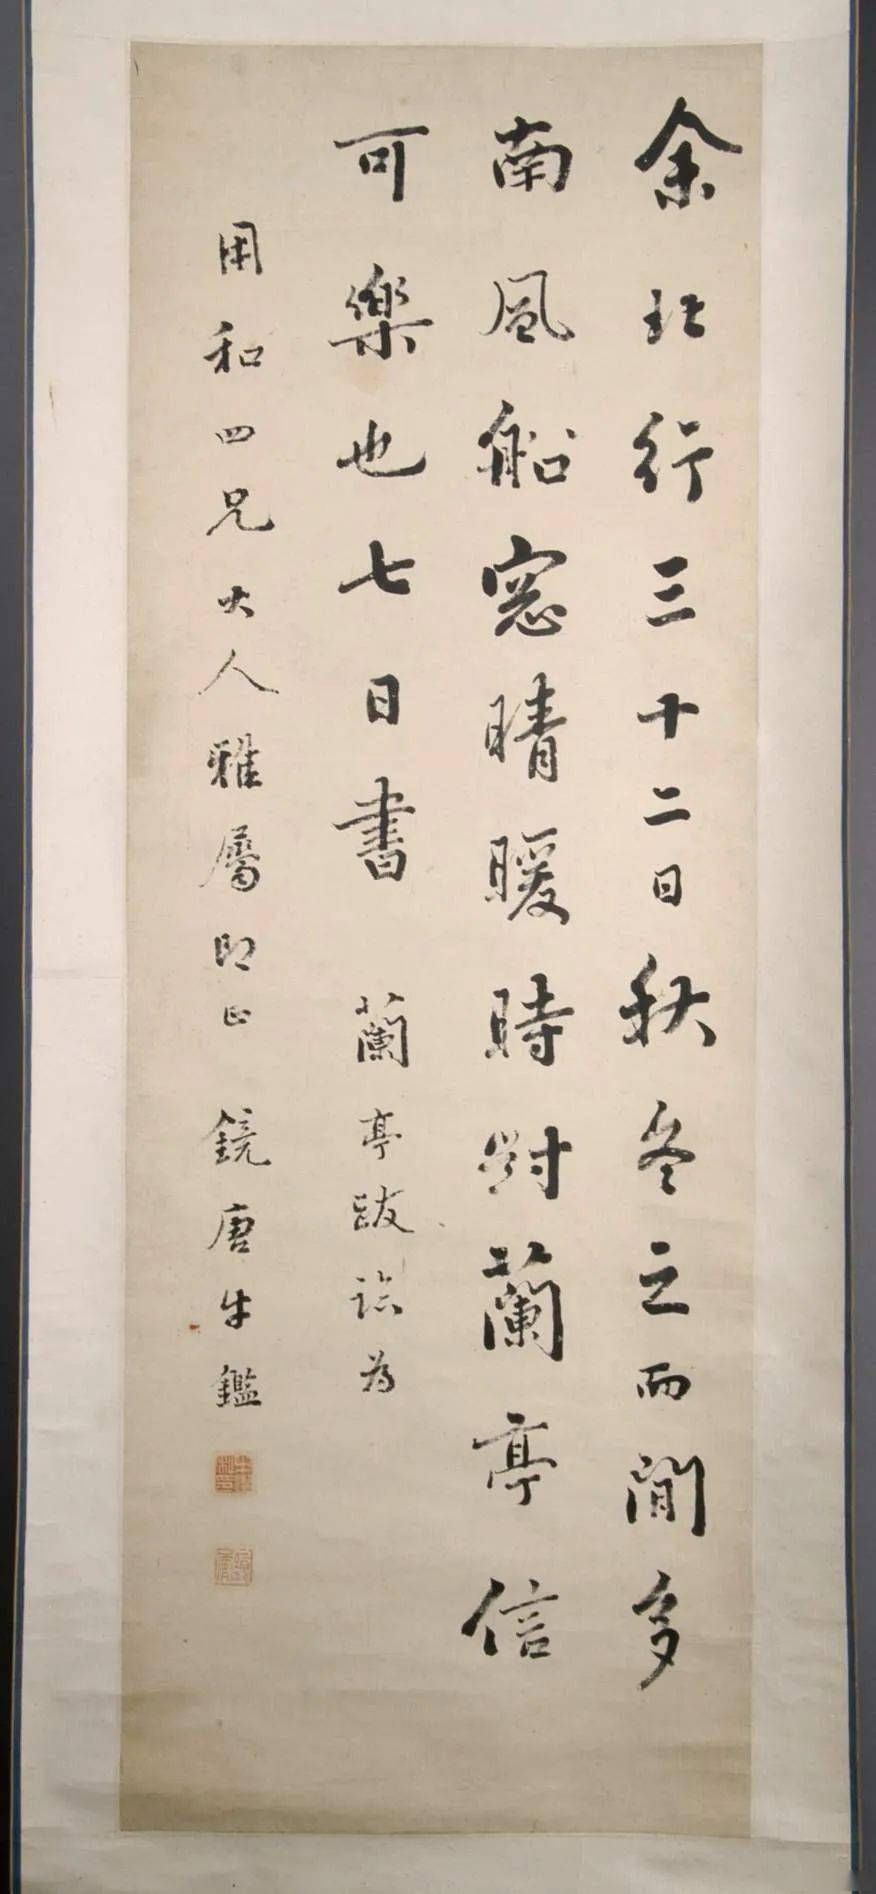 余北行三十二日秋冬之而間多
南風船窓晴暖時對蘭亭信
可樂也七日書 蘭亭跋臨為
用和四兄大人雅屬即正 鏡唐牛鑑